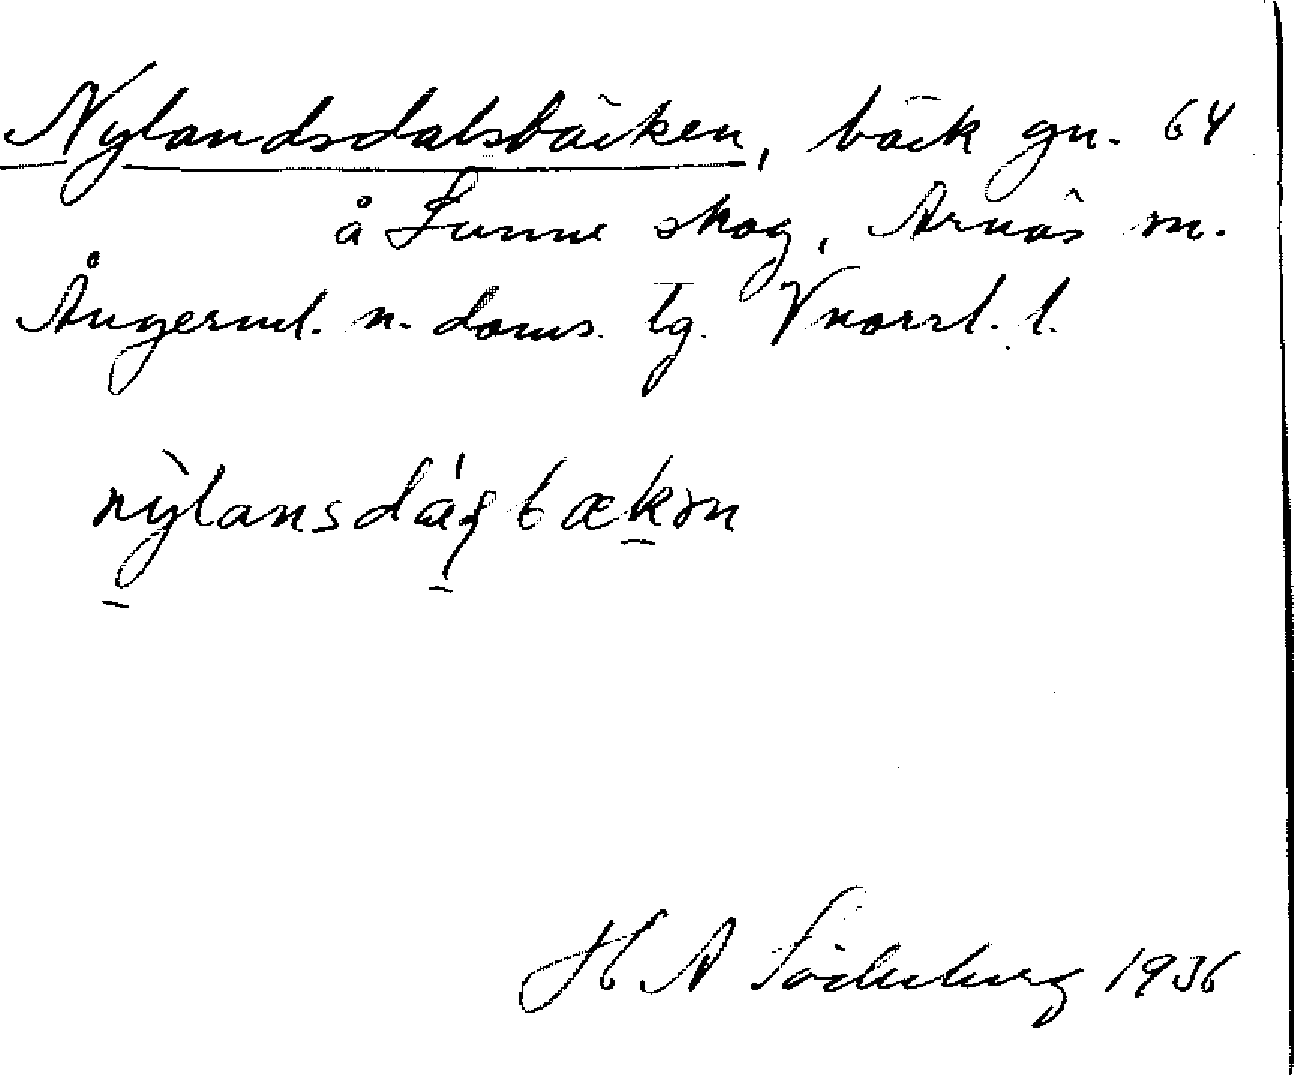 Nylandsdalsbäcken, bäck gn. 64
å Sunne skog, Arnäs sn.
Ångerml. n. doms. tg. Vnorrl. l.
H A Söderberg 1936